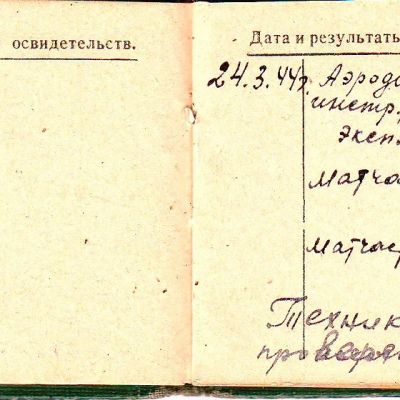 освидетельств.
Дата и результать
24.3.44г. Аэроди
инстр.
Эксп.
Матчас
Матчас
Техник
провере